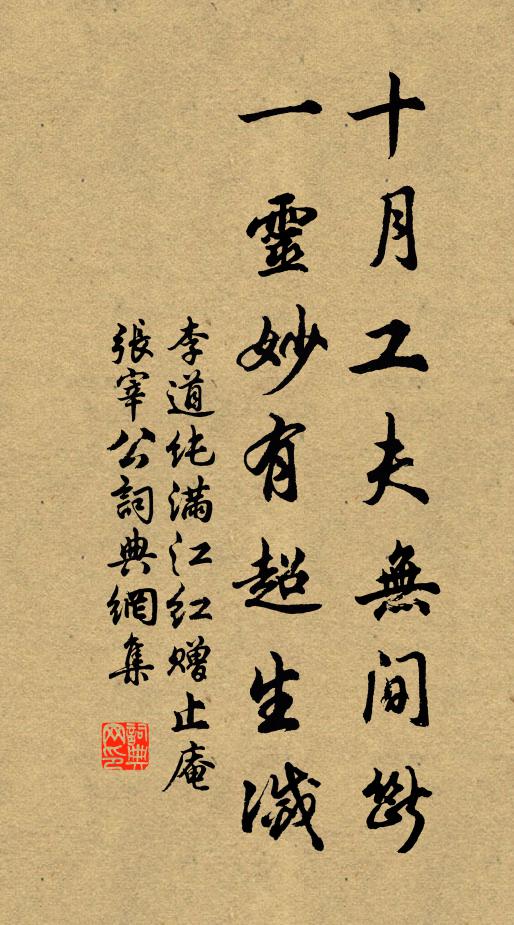 十月工夫無間斷
一靈妙有超生滅
李道纯滿江红赠止庵
張宰公詞典網集
詞典网印